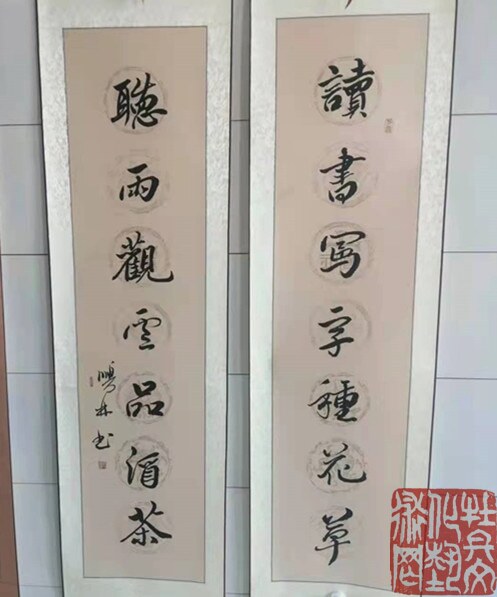 讀書寫字種花草
聽雨觀雲品酒茶
鵬林书